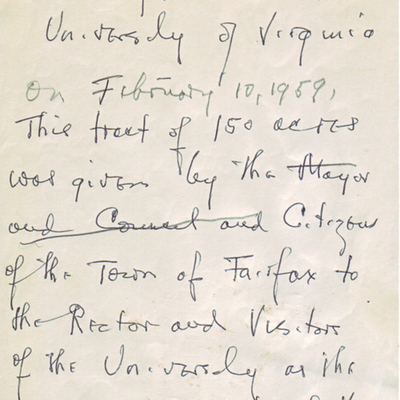 University of Virginia
on February 10, 1959,
This tract of 150 acres
was given by the Mayor
and Council and Citizens
of the Town of Fairfax to
the Rector and Visitors
of the University as the